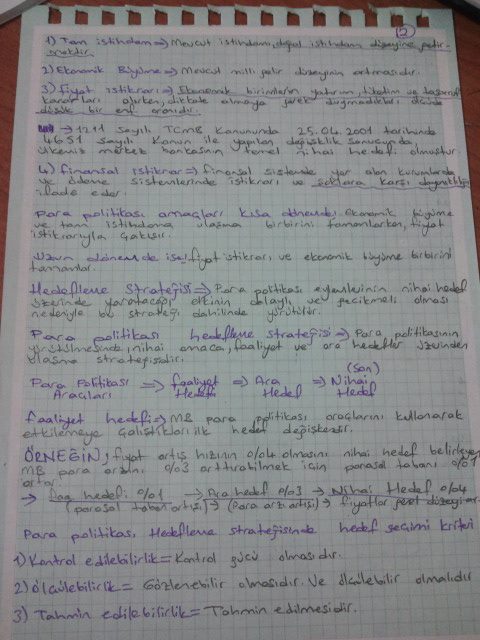 2
1) Tam istihdam => Mevcut istihdamı, doğal istihdam düzeyine getir-
mektir.
2) Ekonomik Büyüme => Mevcut milli gelir düzeyinin artmasıdır.
3) fiyat istikrarı => Ekonomik birimlerin yatırım, tüketim ve tasarruf
kararları alırken, dikkate almaya gerek duymadıkları ölçüde
düşük bir enf. oranıdır.
→ 1211 sayılı TCMB Kanununda 25.04.2001 tarihinde
4651 sayılı Kanun ile yapılan değişiklik sonucunda,
ülkemiz merkez bankasının temel nihai hedefi olmuştur.
4) finansal istikrar => finansal sistemde yer alan kurumlarda
ve ödeme sistemlerinde istikrarı ve şoklara karşı dayanıklılığı
ifade eder.
Para politikası amaçları kısa dönemde, ekonomik büyüme
ve tam istihdama ulaşma birbirini tamamlarken, fiyat
istikrarıyla çakışır.
Uzun dönemde ise, fiyat istikrarı ve ekonomik büyüme birbirini
tamamlar.
Hedefleme Stratejisi => Para politikası eylemlerinin nihai hedef
üzerinde yaratacağı etkinin dolaylı ve gecikmeli olması
nedeniyle bu strateji dahilinde yürütülür.
Para politikası hedefleme stratejisi => Para politikasının
yürütülmesinde, nihai amaca, faaliyet ve ara hedefler üzerinden
ulaşma stratejisidir.
(Son)
Para Politikası => faaliyet => Ara => Nihai
Araçları Hedefi Hedef Hedef
faaliyet hedefi => MB para politikası araçlarını kullanarak
etkilemeye çalıştıkları ilk hedef değişkendir.
ÖRNEĞİN, fiyat artış hızının %4 olmasını nihai hedef belirleyen
MB para arzını %3 arttırabilmek için parasal tabanı %1
artar.
→ faa. hedefi %1 → Ara hedef %3 → Nihai Hedef %4
(parasal taban artışı) → (Para arzı artışı) → fiyatlar genel düzeyi
Para politikası, Hedefleme Stratejisinde hedef seçimi kriteri
1) Kontrol edilebilirlik = Kontrol gücü olmasıdır.
2) ölçülebilirlik = Gözlenebilir olmasıdır. Ve ölçülebilir olmalıdır
3) Tahmin edilebilirlik = Tahmin edilmesidir.